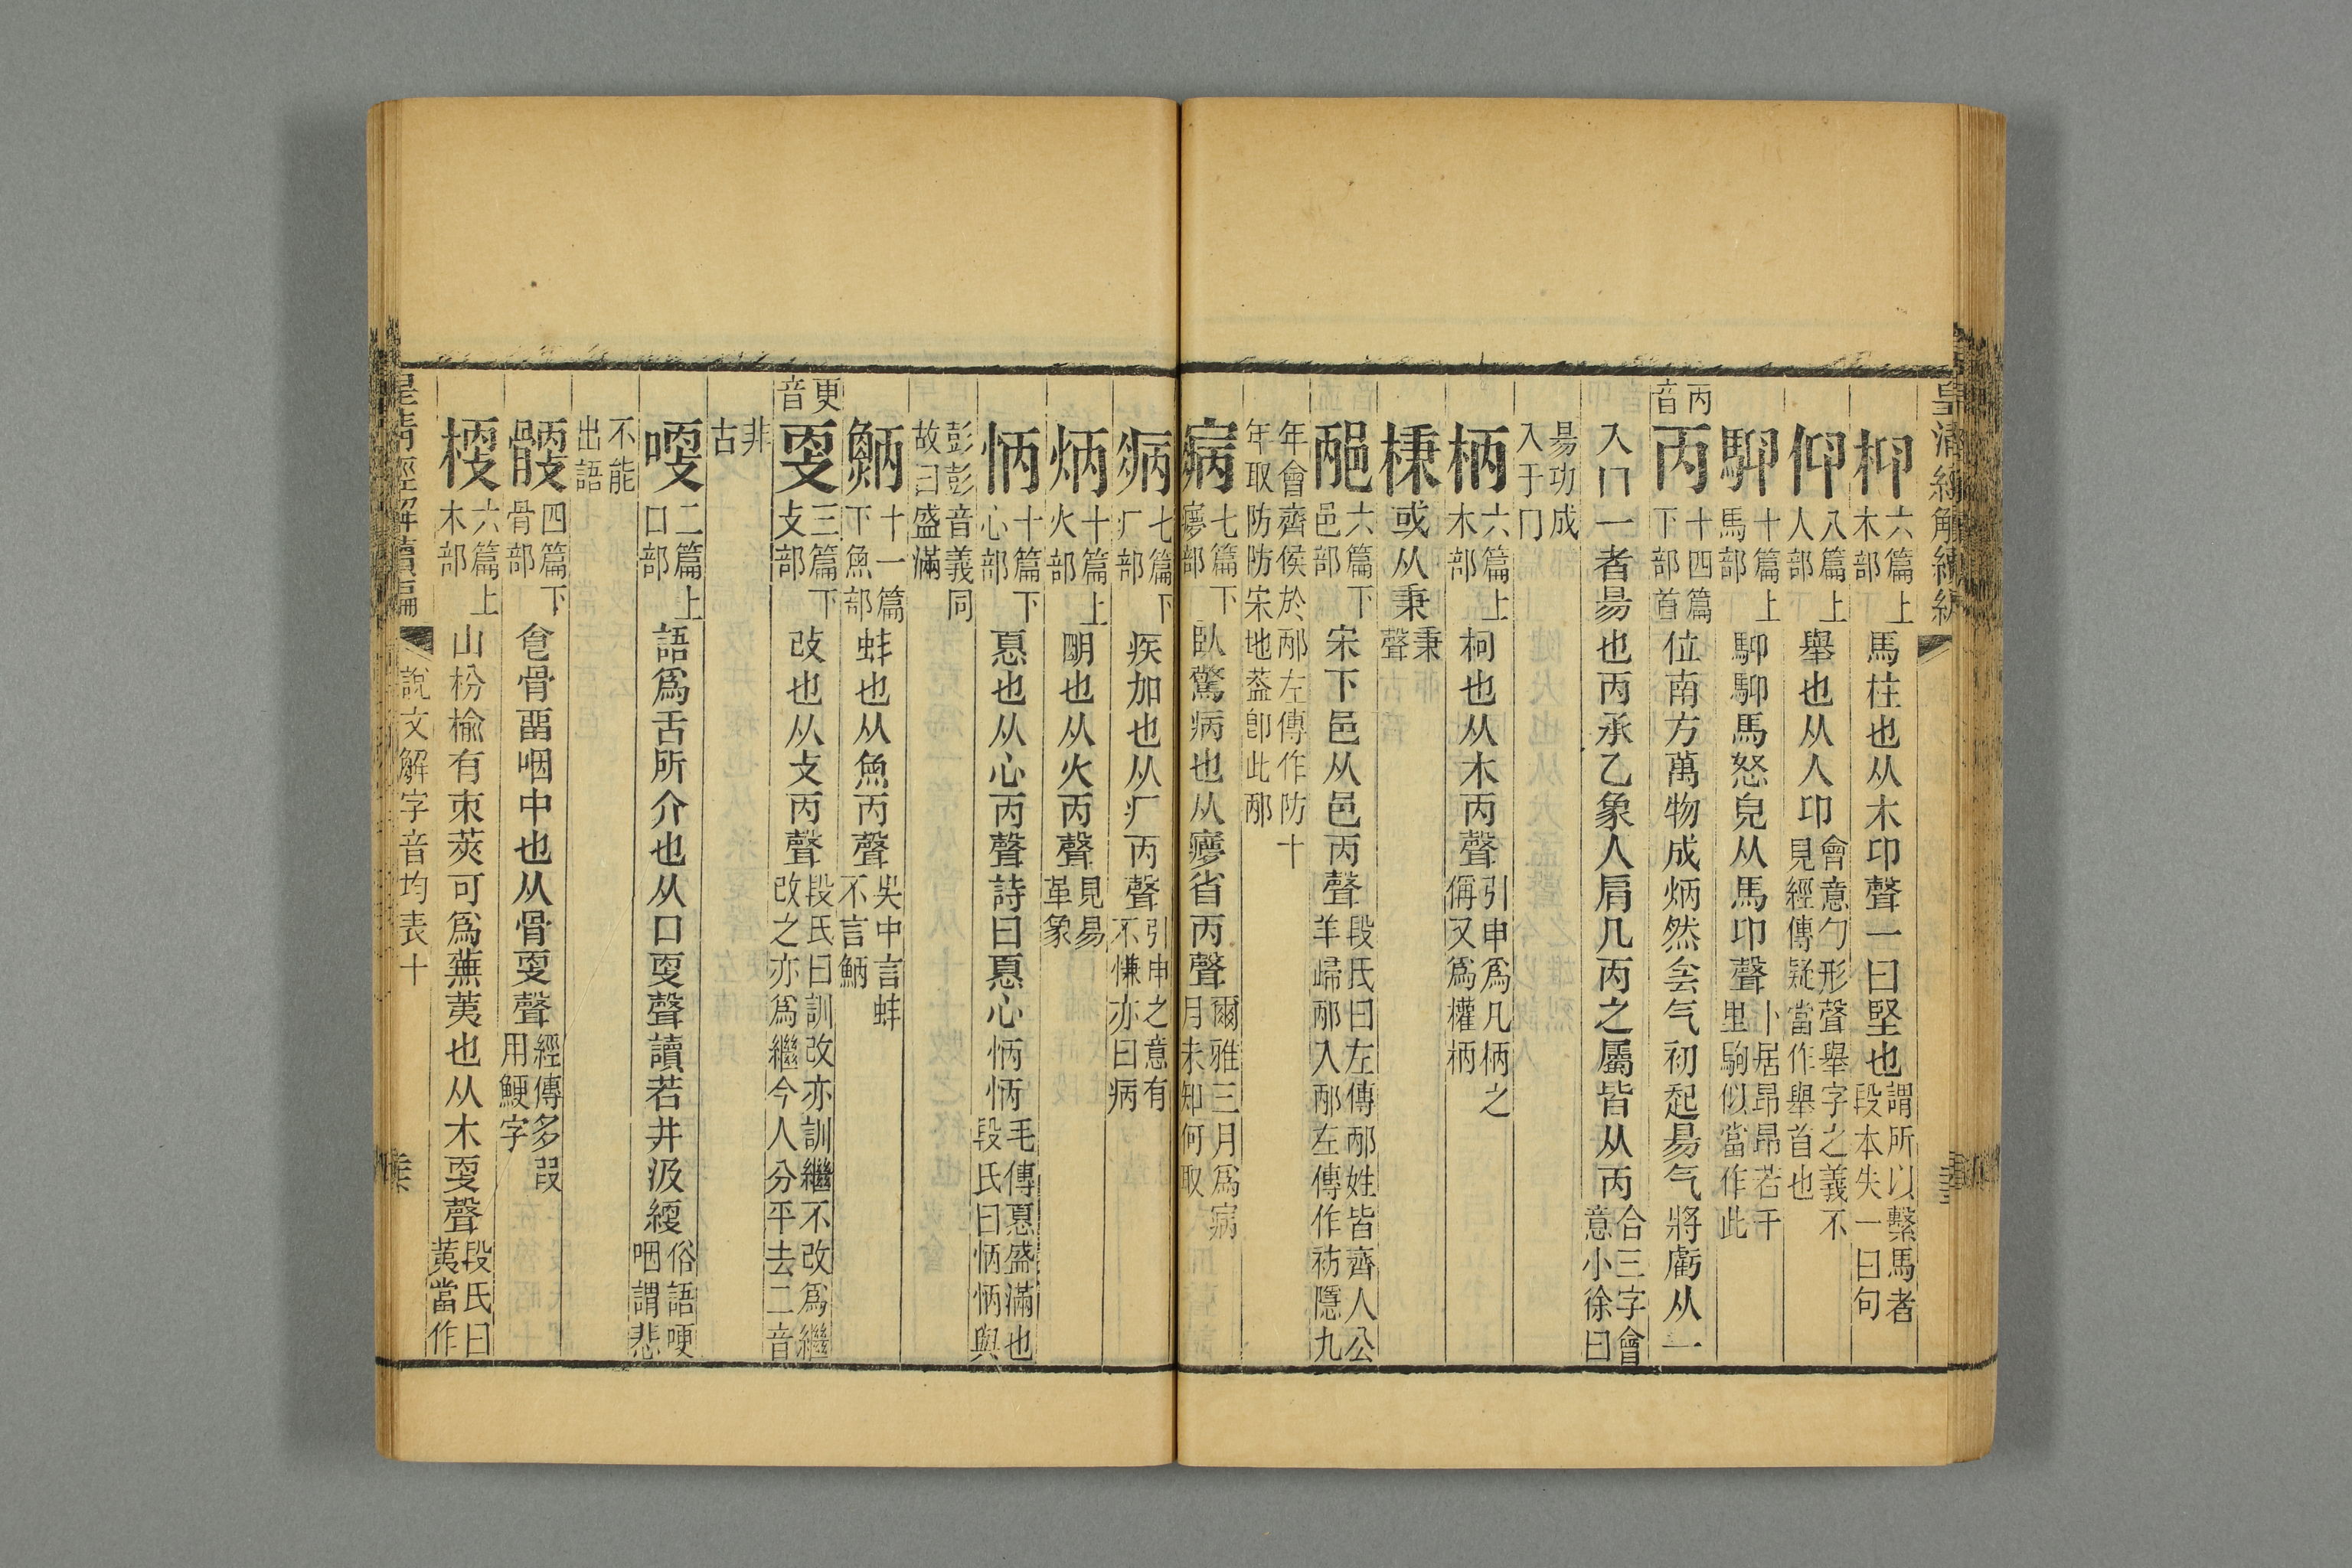 皇清經解續編
枊六篇上木部馬柱也从木卬聲一曰堅也謂所以繫馬者段本失一曰句
仰八篇上人部舉也从人卬會意勹形聲舉字之義不見經傳疑當作舉首也
䭹十篇上馬部䭹䭹馬怒皃从馬卬聲卜居昂昂若千里駒似當作此
丙音
丙十四篇下部首位南方萬物成炳然侌气初起昜气將虧从一
入冂一者昜也丙承乙象人肩凡丙之屬皆从丙合三字會意小徐曰
昜功成入于冂
柄六篇上木部柯也从木丙聲引申爲凡柄之偁又爲權柄
棅或从秉秉聲
邴六篇下邑部宋下邑从邑丙聲段氏曰左傳邴姓皆齊人公羊歸邴入邴左傳作祊隱九
年會齊侯於邴左傳作防十年取防防宋地葢卽此邴
寎七篇下㝱部臥驚病也从㝱省丙聲爾雅三月爲寎月未知何取
病七篇下疒部疾加也从疒丙聲引申之意有不慊亦曰病
炳十篇上火部朙也从火丙聲見易革象
怲十篇下心部𢝊也从心丙聲詩曰𢝊心怲怲毛傳𢝊盛滿也段氏曰怲怲與
彭彭音義同故曰盛滿
鮩十一篇下魚部蚌也从魚丙聲吳中言蚌不言鮩
更音
㪅三篇下攴部改也从攴丙聲段氏曰訓改亦訓繼不改爲繼改之亦爲繼今人分平去二音
非古
哽二篇上口部語爲舌所介也从口㪅聲讀若井汲綆俗語哽咽謂悲
不能出語
骾四篇下骨部食骨畱咽中也从骨㪅聲經傳多叚用鯁字
梗六篇上木部山枌榆有朿莢可爲蕪荑也从木㪅聲段氏曰荑當作
皇清經解續編
說文解字音均表十